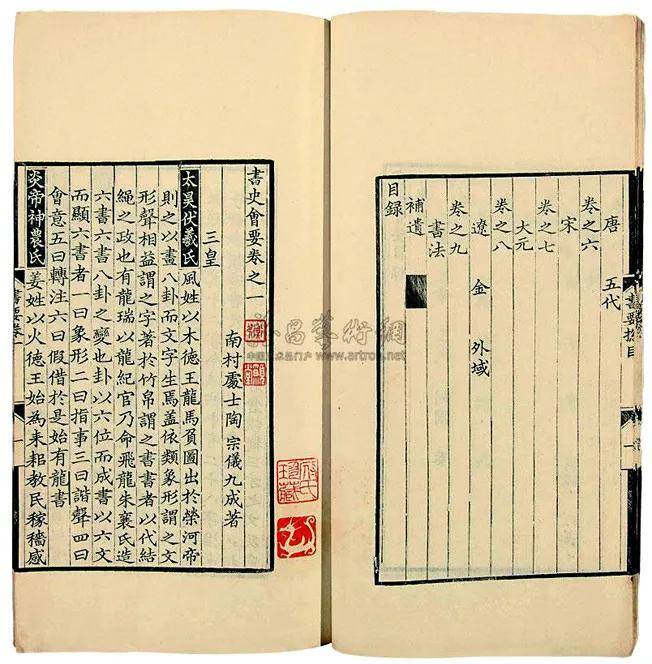 唐 五代
卷之六
宋
卷之七
大元
卷之八
遼 金 外域
卷之九
書法
補遺
目録
書史會要卷之一
南村處士陶宗儀九成著
三皇
太昊伏羲氏風姓以木德王龍馬負圖出於榮河帝
則之以畫八卦而文字生焉蓋依類象形謂之文
形聲相益謂之字著於竹帛謂之書書者以代結
繩之政也有龍瑞以龍紀官乃命飛龍朱襄氏造
六書六書八卦之變也卦以六位而成書以六文
而顯六書者一曰象形二曰指事三曰諧聲四曰
會意五曰轉注六曰假借於是始有龍書
炎帝神農氏姜姓以火德王始為耒耜教民稼穡感
書要卷一
昌藝術網
www.artron.net